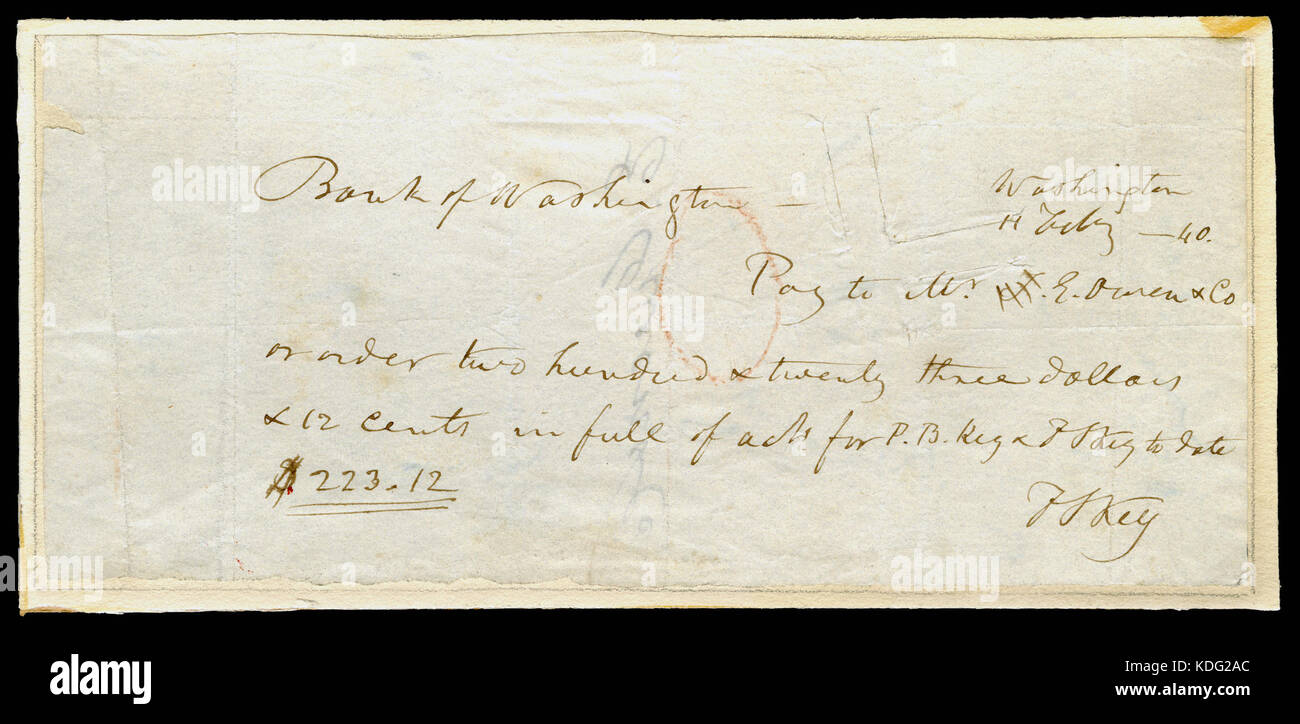 Bank of Washington —
Washington
11 Feby — 40.
Pay to Mr. E. Owen & Co
or order two hundred & twenty three dollars
& 12 cents in full of acts for P. B. Key & F S Key to date
$ 223.12
F S Key
alamy stock photo
KDG2AC
www.alamy.com